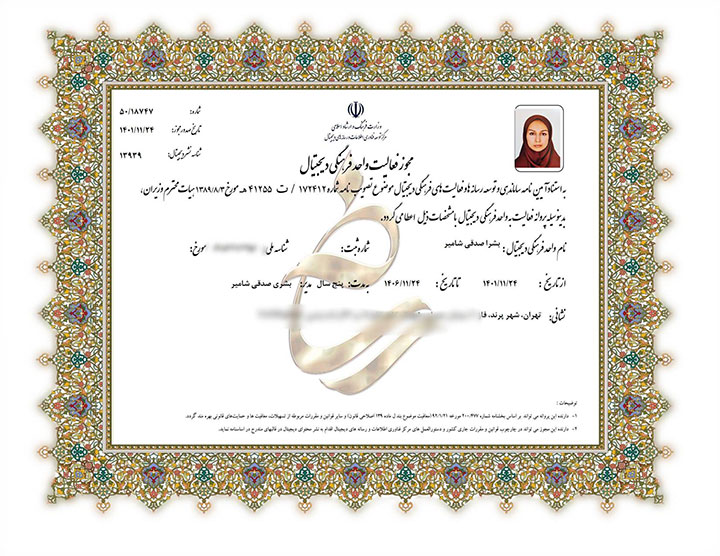 وزارت فرهنگ و ارشاد اسلامی
مرکز توسعه فناوری اطلاعات و رسانه‌های دیجیتال
شماره: ۵۰/۱۸۷۴۷
تاریخ صدور مجوز: ۱۴۰۱/۱۱/۲۴
شناسه نشر دیجیتال: ۱۳۹۳۹
مجوز فعالیت واحد فرهنگی دیجیتال
به استناد آیین نامه ساماندهی و توسعه رسانه‌ها و فعالیت‌های فرهنگی دیجیتال موضوع تصویب نامه شماره ۱۷۲۴۱۲ / ت ۴۱۲۵۵ هـ مورخ ۱۳۸۹/۸/۳ هیات محترم وزیران،
بدینوسیله پروانه فعالیت به واحد فرهنگی دیجیتال با مشخصات ذیل اعطا می گردد.
نام واحد فرهنگی دیجیتال: بشرا صدقی شامیر شماره ثبت: شناسه ملی: مورخ:
از تاریخ: ۱۴۰۱/۱۱/۲۴ تا تاریخ: ۱۴۰۶/۱۱/۲۴ به مدت: پنج سال مدیر: بشری صدقی شامیر
نشانی: تهران، شهر پرند،
توضیحات:
۱- دارنده این پروانه می تواند بر اساس بخشنامه شماره ۲۰۰/۴۷۷ مورخه ۹۲/۱/۲۱(معافیت موضوع بند ل ماده ۱۳۹ اصلاحی قانون) و سایر قوانین و مقررات مربوطه از تسهیلات، معافیت ها و حمایت‌های قانونی بهره مند گردد.
۲- دارنده این مجوز می تواند در چارچوب قوانین و مقررات جاری کشور و دستورالعمل های مرکز فناوری اطلاعات و رسانه های دیجیتال اقدام به نشر محتوای دیجیتال در قالبهای مندرج در اساسنامه نماید.